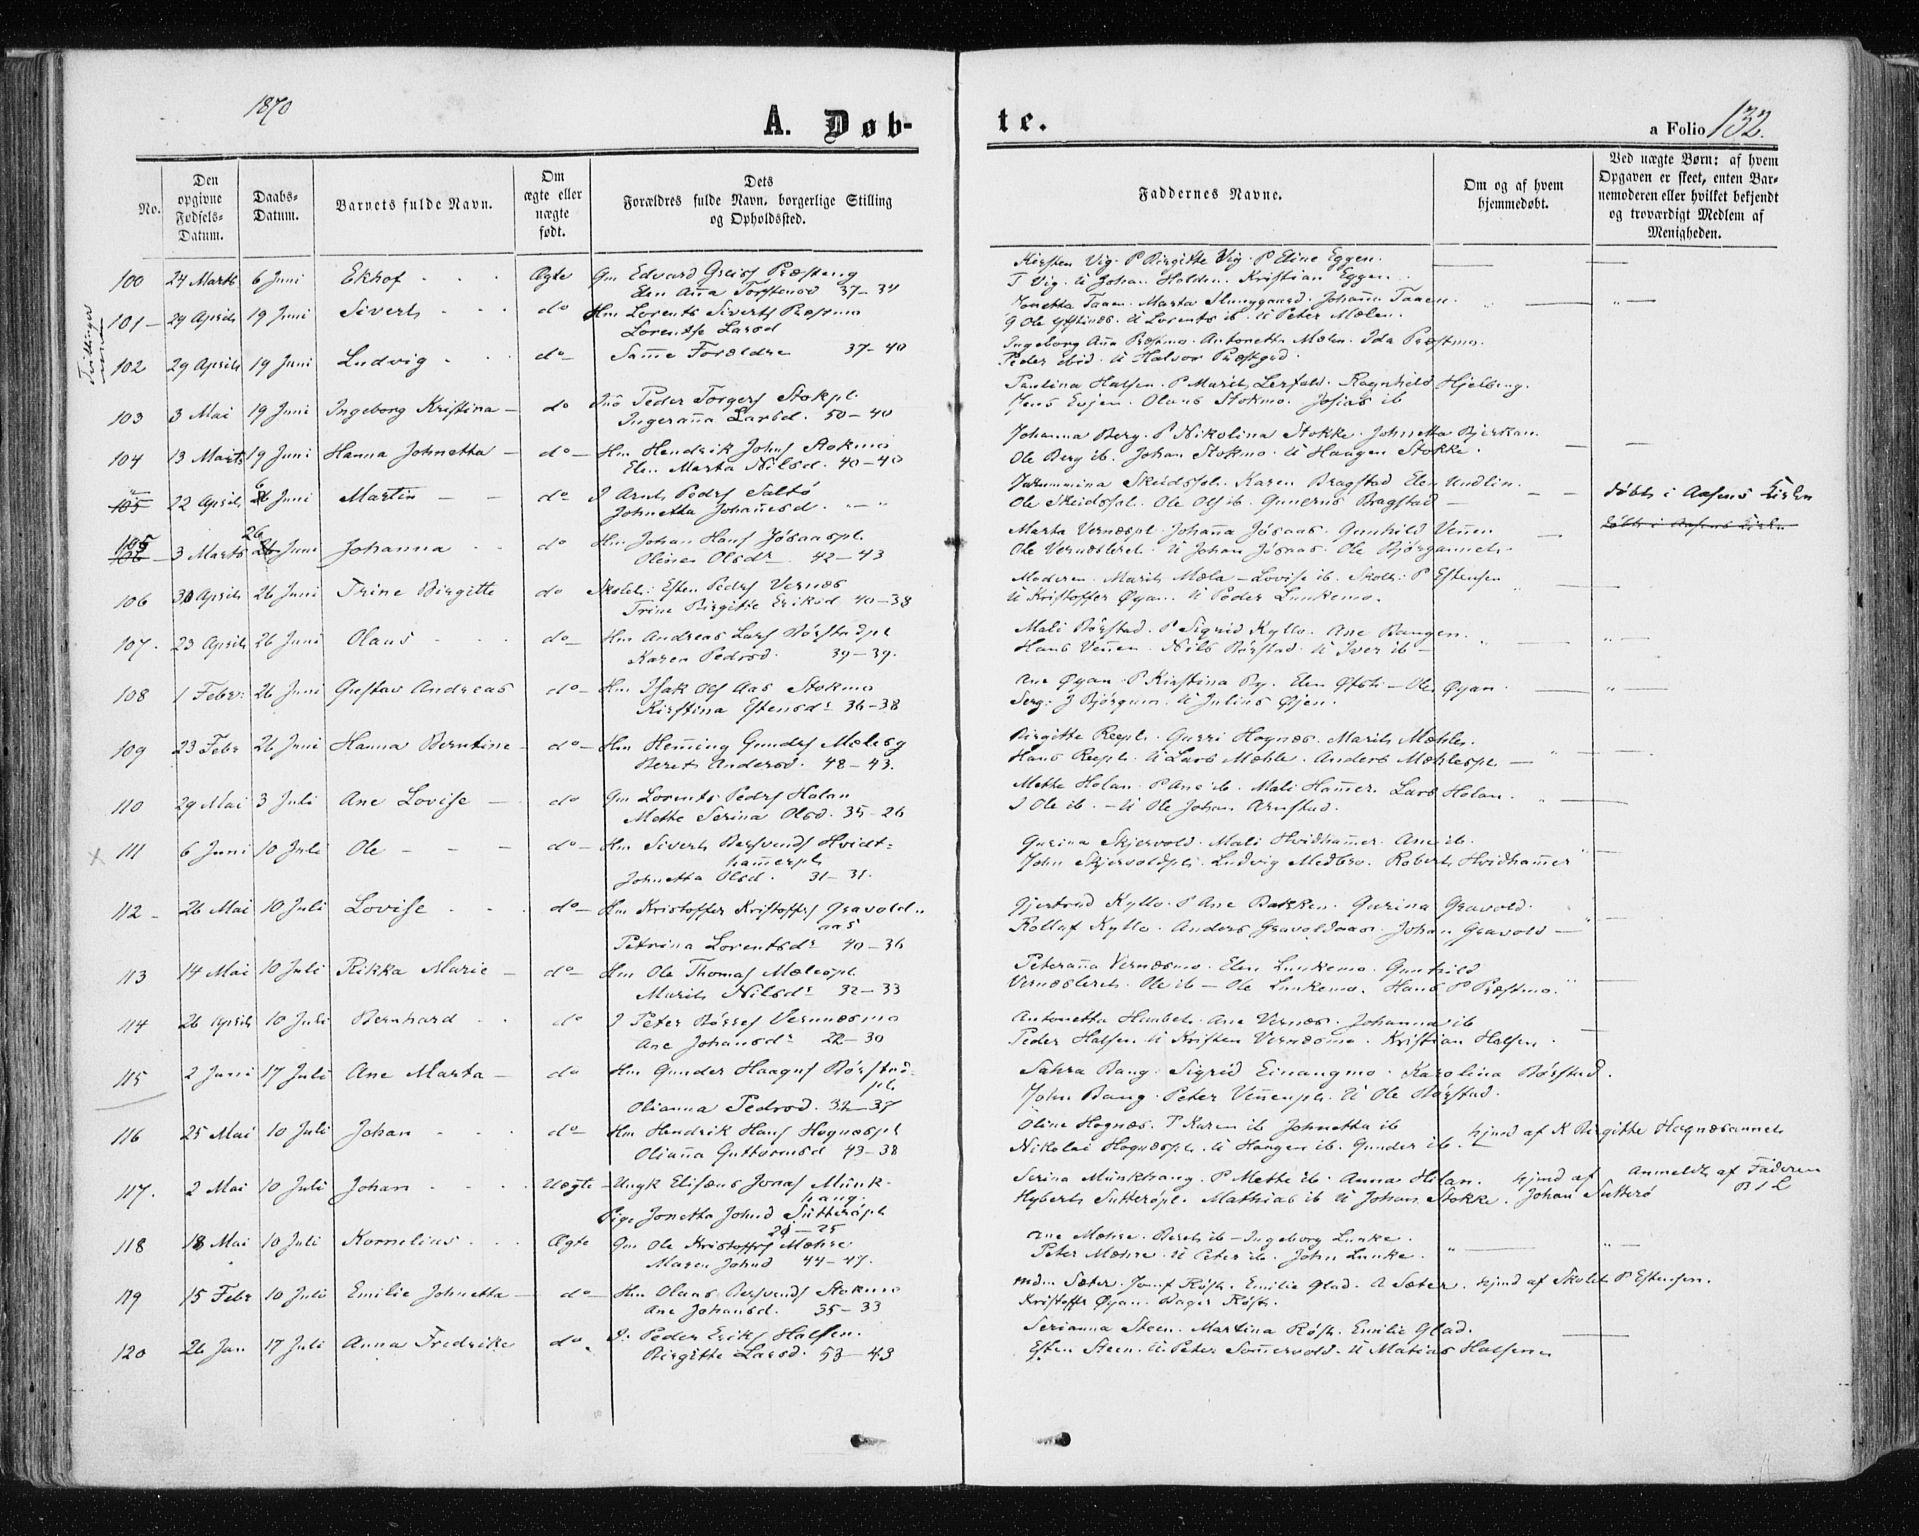 1870
A. Døb-
te.
a Folio 132.
No.
Den opgivne Fødsels-Datum.
Daabs-Datum.
Barnets fulde Navn.
Om ægte eller uægte født.
Dets Forældres fulde Navn, borgerlige Stilling og Opholdssted.
Faddernes Navne.
Om og af hvem hjemmedøbt.
Ved uægte Børn: af hvem Opgaven er skeet, enten Barnemoderen eller hvilket bekjendt og troværdigt Medlem af Menigheden.
100 24 Marts 6 Juni Ekhof Ægte Gm Edvard Præsteng
Elen Anna Torstensd 37-34
Kirsten Vig. P Birgitte Vig. P Eline Eggen.
T Vig. U Johan Halden. Kristian Eggen.
Tvillinger
101 29 Aprils 19 Juni Siverts do Hm Lorents Siverts Præsmo
Lorentse Larsd
Jonetta Taaen. Marta Johanna Taaen.
G Ole U Lorents ib. U Peter Mælen.
102 29 Aprils 19 Juni Ludvig do Samme Forældre 37-40
Ingeborg Ana Præsmo. Antonetta Mælen. Ida Præstmo.
Peder ibid. U Halvor Præstgrd.
103 3 Mai 19 Juni Ingeborg Kristina do Peder Torgers Stokpl.
Ingerana Larsd. 50-40
Paulina Halsen. P Marits Lerfald. Ragnhild Hjelseng.
Jens Evjen. Olaus Stokmo. Josias ib
104 13 Marts 19 Juni Hanna Johnetta do Hm Hendrik Johns Stokmo
Elen Marta Nilsd. 40-40
Johanna Berg. P Nikolina Stokke. Johnetta Bjerkan.
Ole Berg ib. Johan Stokmo. U Haagen Stokke.
105 22 Aprils 6 Juni Martin do I Arnt Peders Saltø
Johnetta Johanesd.
Skeidsspl. Karen Bragstad Elen Undlin.
Ole Skeidsspl. Ole Ols ib. Gunerius Bragstad
døbt i Aasens Kirke
døbt i Aasens Kirke
105 3 Marts 26 Juni Johanna do Hm Johan Hans Jøsaaspl.
Oline Olsdr 42-43
Marta Vernæspl. Johana Jøsaas. Gunhild Venen
Ole Vernæsleret. U Johan Jøsaas. Ole
106 30 Aprils 26 Juni Trine Birgitte do Skolel: Esten Peders Vernæs
Trine Birgitte Eriksd 40-38
Moderen. Marits Mæla. Lovise ib. Skoll: P Estensen
U Kristoffer Øyan. U Peder Lunkemo.
107. 23 Aprils 26 Juni Olaus do Hm Andreas Lars Børstadpl
Karen Pedersd. 39-39.
Mali Børstad. P Sigrid Kyllo. Ane Bangen.
Hans Venen. Nils Børstad. U Iver ib
108 1 Febr: 26 Juni Gustav Andreas do Hm Isak Ols Aas Stokmo
Kirstina Estensdr 36-38
Ane Øyan. P Kirstina By. Elen Øfsti. Ole Øyan.
Serg: J Bjørgum. U Julius Øien.
109 23 Febr 26 Juni Hanna Berntine do Hm Heming Gunders Mæleeg
Berets Andersd. 48-43.
Birgitte Reepl. Gurri Hognæs. Marits Mæhle.
Hans Reepl. U Lars Mæhle. Anders Mæhlespl
110 29 Mai 3 Juli Ane Lovise do Gm Lorents Peders Holan
Mette Serina Olsd. 35-26
Mette Holan. P Ane ib. Mali Hamer. Lars Holan.
I Ole ib. U Ole Johan Arnstad.
111 6 Juni 10 Juli Ole do Hm Siverts Bersvends Hvidt-
hamerpl
Johnetta Olsd. 31-31.
Gurina Skjervold. Mali Hvidhamer. Ane ib.
John Skjervoldspl. Ludvig Medbro. Roberts Hvidhamer
112 26 Mai 10 Juli Lovise do Hm Kristoffer Kristoffers Gravold-
aas
Petrina Lorentsdr 40-36
Gjertrud Kyllo. P Ane Bakken. Gurina Gravold.
Rollaf Kyllo. Anders Gravoldaas. Johan Gravold
113 14 Mai 10 Juli Rikka Marie do Hm Ole Thomas Mælespl.
Marits Nilsdr 32-33
Peterana Vernæsmo. Elen Lunkemo. Gunhild
Vernæsleret. Ole ib. Ole Lunkemo. Hans P Præstmo.
114 26 Aprils 10 Juli Bernhard do I Peter Børres Vernæsmo
Ane Johansdr 22-30
Antonetta Ane Vernæs. Johanna ib
Peder Halsen U Kristen Vernæsmo. Kristian Halsen.
115 2 Juni 17 Juli Ane Marta do Hm Gunder Haagns Børstad-
pl.
Olianna Pedersd. 32-37
Sahra Bang. Sigrid Einangmo. Karolina Børstad.
John Bang. Peter Venenpl. U Ole Børstad.
116 25 Mai 10 Juli Johan do Hm Hendrik Hans Hognæspl
Oliana Guttormsd 43-38
Oline Hognæs. P Karen ib Johnetta ib
Nikolai Hognæspl. U Haagen ib. Gunder ib.
hjmd af K Birgitte Hognæsannets
117. 2 Mai 10 Juli Johan Uægte Ungk Elisæus Jonas Munk-
haug.
Pige Jonetta Johnsd Sutterøpl
24-25
Serina Munkhaug. P Mette ib. Anna Hilan.
Hyberts Sutterøpl. Mathias ib U Johan Stokke.
hjmd af Johan Sutterø
Anmeldt af Faderen
B & L
118 18 Mai 10 Juli Kornelius Ægte Gm Ole Kristoffers Mæhre
Maren Johnsd 44-47.
Ane Mæhre. Berets ib. Ingeborg Lunke.
Peter Mæhre. U Peter ib. John Lunke.
119 15 Febr 10 Juli Emilie Johnetta do Hm Olaus Bersvends Stokmo
Ane Johansd. 35-33
Mdm Sæter. Jomf Røst. Emilie Glad. A Sæter.
Kristoffer Øyan. Røst.
hjmd af Skolel P Estensen.
120 26 Jan 17 Juli Anna Fredrikke do I: Peder Eriks Halsen.
Birgitte Larsd. 53-43
Serianna Steen. Martina Røst. Emilie Glad.
Esten Steen. U Peter Somervold. U Matias Halsen